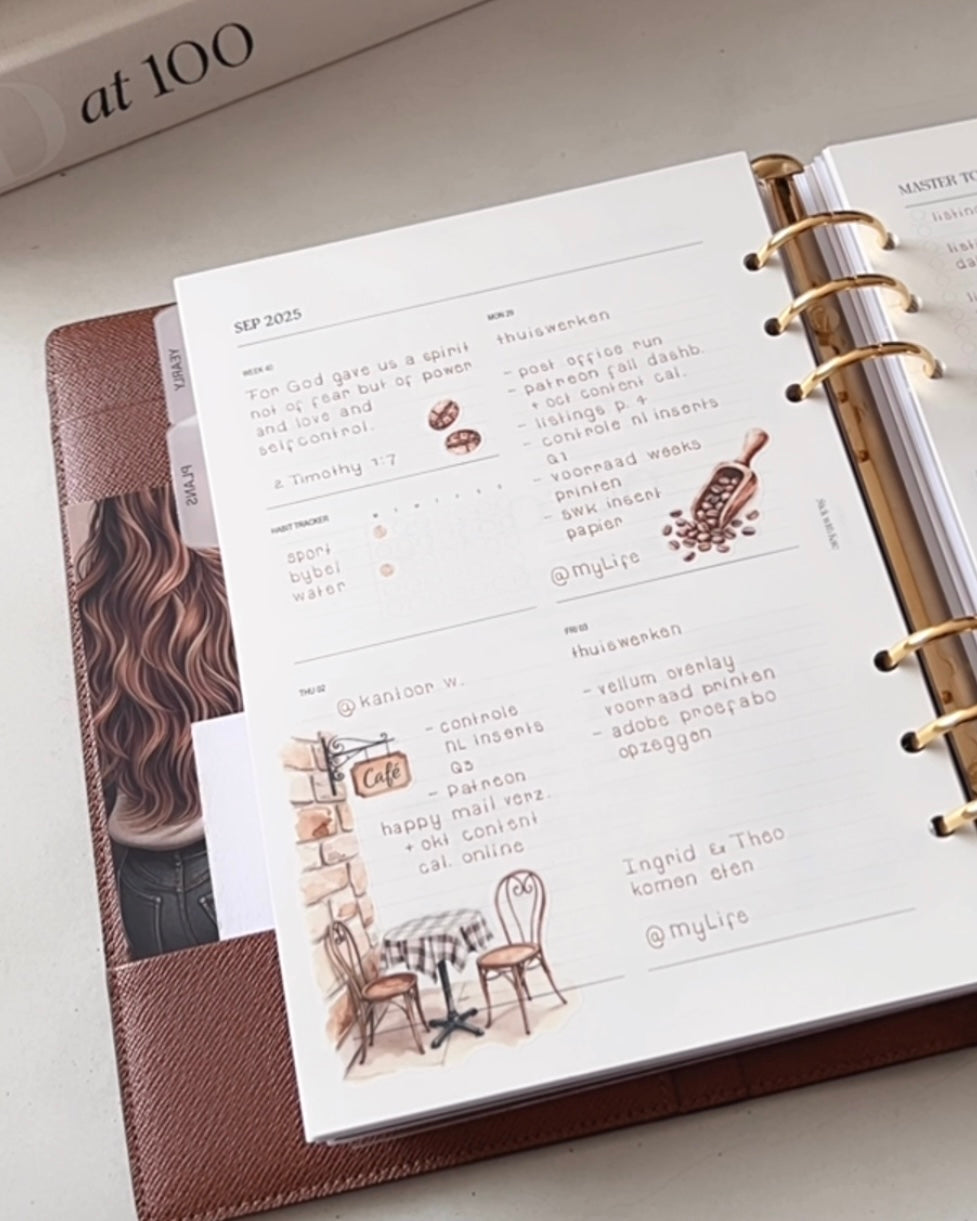 at 100
YEARLY
PLANS
SEP 2025
WEEK 40
"For God gave us a spirit
not of fear but of power
and love and
selfcontrol.
2 Timothy 1:7
HABIT TRACKER
M T W T F S S
sport
bybel
water
MON 29
thuiswerken
- post office run
- patreon fall dashb.
+ oct content cal.
- listings p. 4
- controle nl inserts
Q1
- voorraad weeks
printen
- swk insert
papier
@myLife
THU 02
@kantoor w.
- controle
nL inserts
Q3
- Patreon
happy mail verz.
+ okt content
cal. online
Café
FRI 03
thuiswerken
- vellum overlay
voorraad printen
- adobe proefabo
opzeggen
Ingrid & Theo
komen eten
@myLife
MASTER TO
listing
list
da